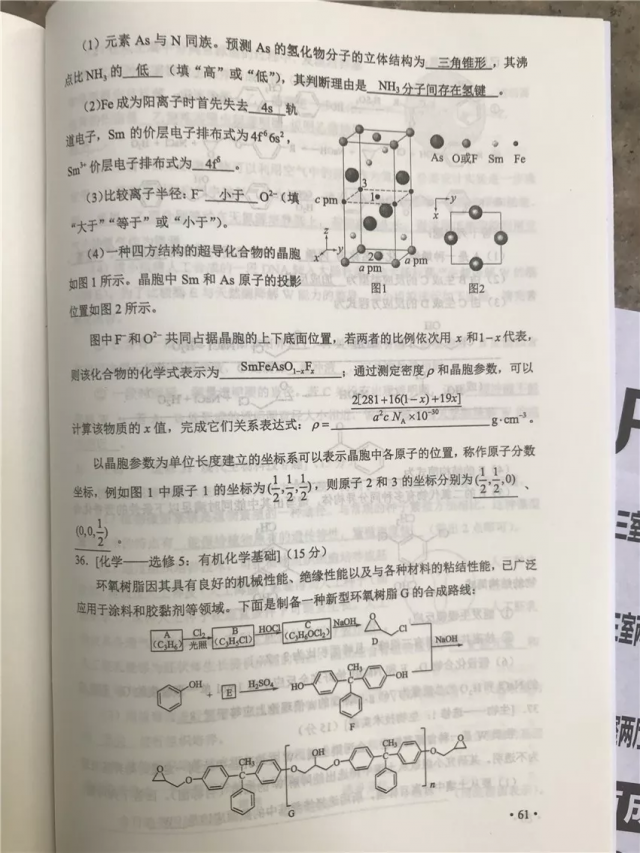 (1) 元素 As 与 N 同族。预测 As 的氢化物分子的立体结构为 三角锥形 ,其沸
点比 NH₃ 的 低 (填“高”或“低”),其判断理由是 NH₃ 分子间存在氢键 。
(2)Fe 成为阳离子时首先失去 4s 轨
道电子,Sm 的价层电子排布式为 4f⁶6s²,
Sm³⁺ 价层电子排布式为 4f⁵ 。
(3)比较离子半径:F⁻ 小于 O²⁻(填
“大于”“等于”或“小于”)。
(4)一种四方结构的超导化合物的晶胞
如图 1 所示。晶胞中 Sm 和 As 原子的投影
位置如图 2 所示。
c pm
3
1
2
a pm
a pm
z
x
y
图1
As O或F Sm Fe
y
x
图2
图中 F⁻ 和 O²⁻ 共同占据晶胞的上下底面位置,若两者的比例依次用 x 和 1−x 代表,
则该化合物的化学式表示为 SmFeAsO₁₋ₓFₓ ;通过测定密度 ρ 和晶胞参数,可以
计算该物质的 x 值,完成它们关系表达式:ρ= 2[281+16(1−x)+19x] / a²c N_A×10⁻³⁰ g·cm⁻³。
以晶胞参数为单位长度建立的坐标系可以表示晶胞中各原子的位置,称作原子分数
坐标,例如图 1 中原子 1 的坐标为(1/2,1/2,1/2),则原子 2 和 3 的坐标分别为 (1/2,1/2,0) 、
(0,0,1/2) 。
36. [化学——选修 5:有机化学基础](15 分)
环氧树脂因其具有良好的机械性能、绝缘性能以及与各种材料的粘结性能,已广泛
应用于涂料和胶黏剂等领域。下面是制备一种新型环氧树脂 G 的合成路线:
A (C₃H₆) Cl₂ 光照 B (C₃H₅Cl) HOCl C (C₃H₆OCl₂) NaOH O Cl D NaOH
OH + E H₂SO₄ HO CH₃ OH F
O O CH₃ O OH O CH₃ O O n
G
·61·